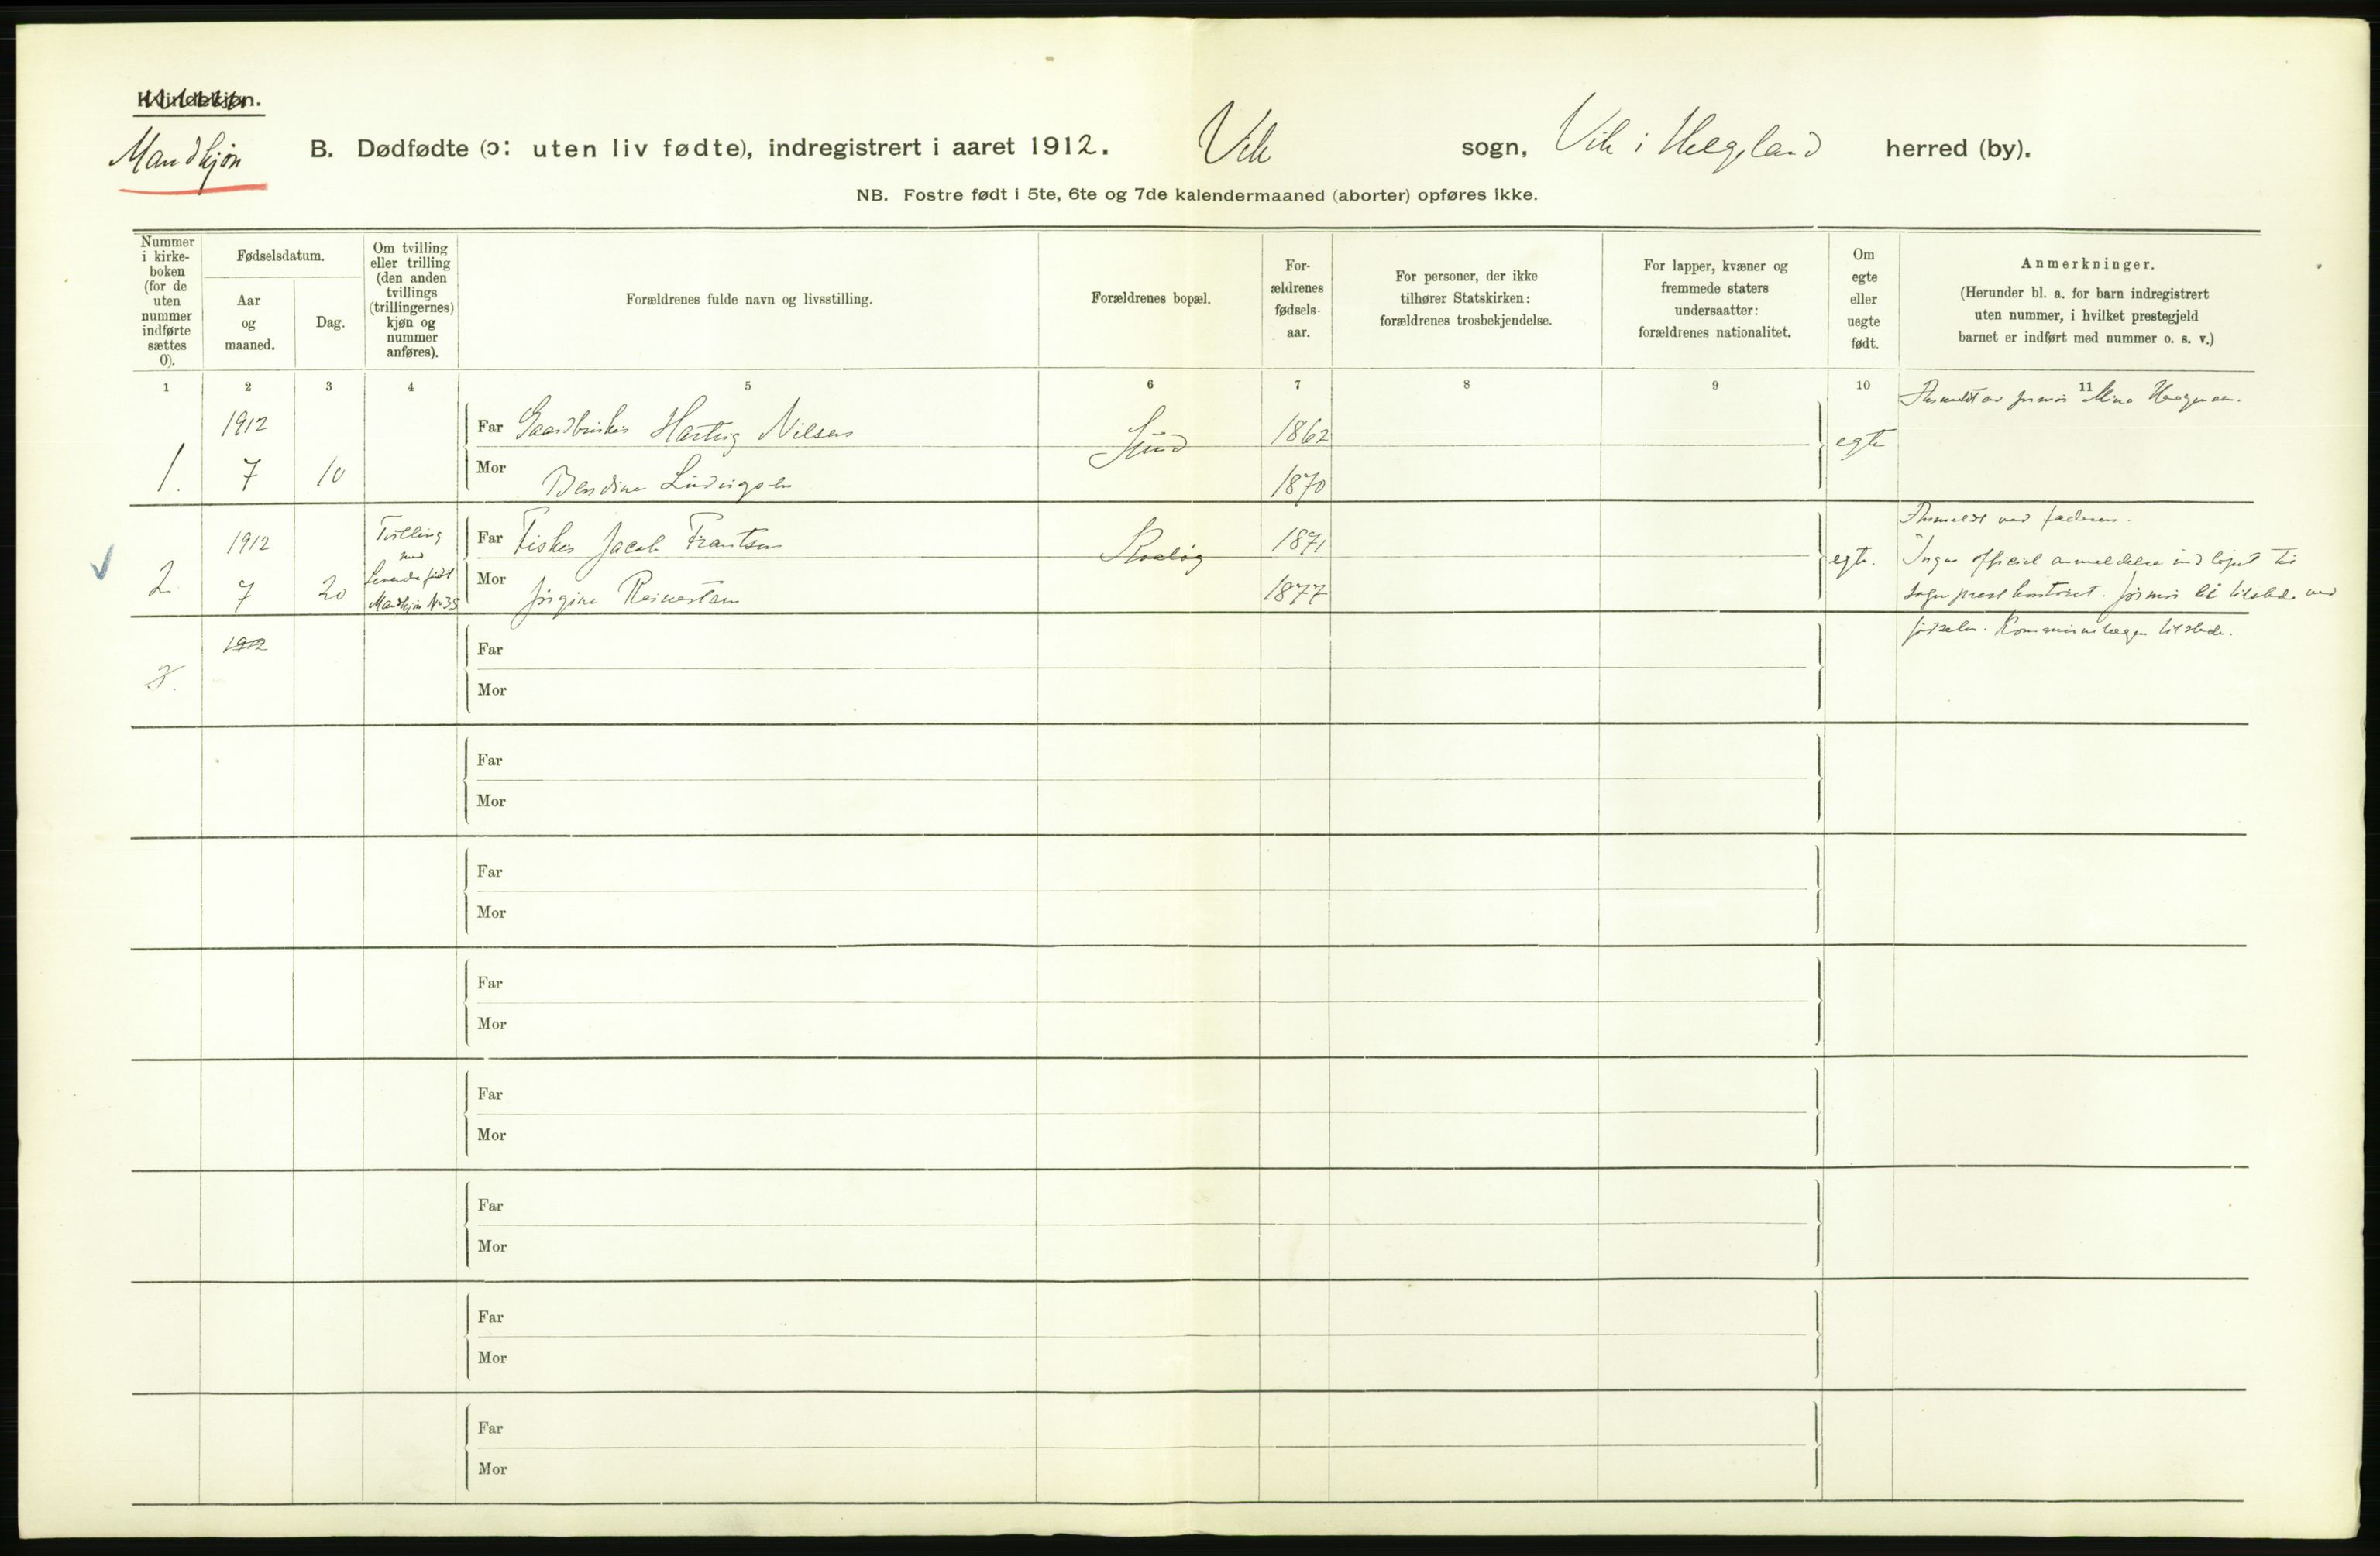 Kvindekjøn.
Mandkjøn
B. Dødfødte (ɔ: uten liv fødte), indregistrert i aaret 1912. Vik sogn, Vik i Helgeland herred (by).
NB. Fostre født i 5te, 6te og 7de kalendermaaned (aborter) opføres ikke.
Nummer
i kirke-
boken
(for de
uten
nummer
indførte
sættes
0).
Fødselsdatum.
Aar
og
maaned.
Dag.
Om tvilling
eller trilling
(den anden
tvillings
(trillingernes)
kjøn og
nummer
anføres).
Forældrenes fulde navn og livsstilling.
Forældrenes bopæl.
For-
ældrenes
fødsels-
aar.
For personer, der ikke
tilhører Statskirken:
forældrenes trosbekjendelse.
For lapper, kvæner og
fremmede staters
undersaatter:
forældrenes nationalitet.
Om
egte
eller
uegte
født.
Anmerkninger.
(Herunder bl. a. for barn indregistrert
uten nummer, i hvilket prestegjeld
barnet er indført med nummer o. s. v.)
1 2 3 4 5 6 7 8 9 10 11
Anmeldt av jormor Mina
1912 Far Gaardbruker Hartvig Nilsen Sund 1862 egte
1. 7 10 Mor Bendine Ludvigsen 1870
Anmeldt ved faderen.
1912 Tvilling Far Fisker Jacob Frantsen 1871
med
egte. Ingen officiel anmeldelse indløpet til
2. 7 20 Levende født Mor Jørgine 1877
Mandkjøn No 35
sogneprestkontoret. Jormor ei tilstede ved
fødselen. Kommunelægen tilstede.
1912 Far
3. Mor
Far
Mor
Far
Mor
Far
Mor
Far
Mor
Far
Mor
Far
Mor
Far
Mor